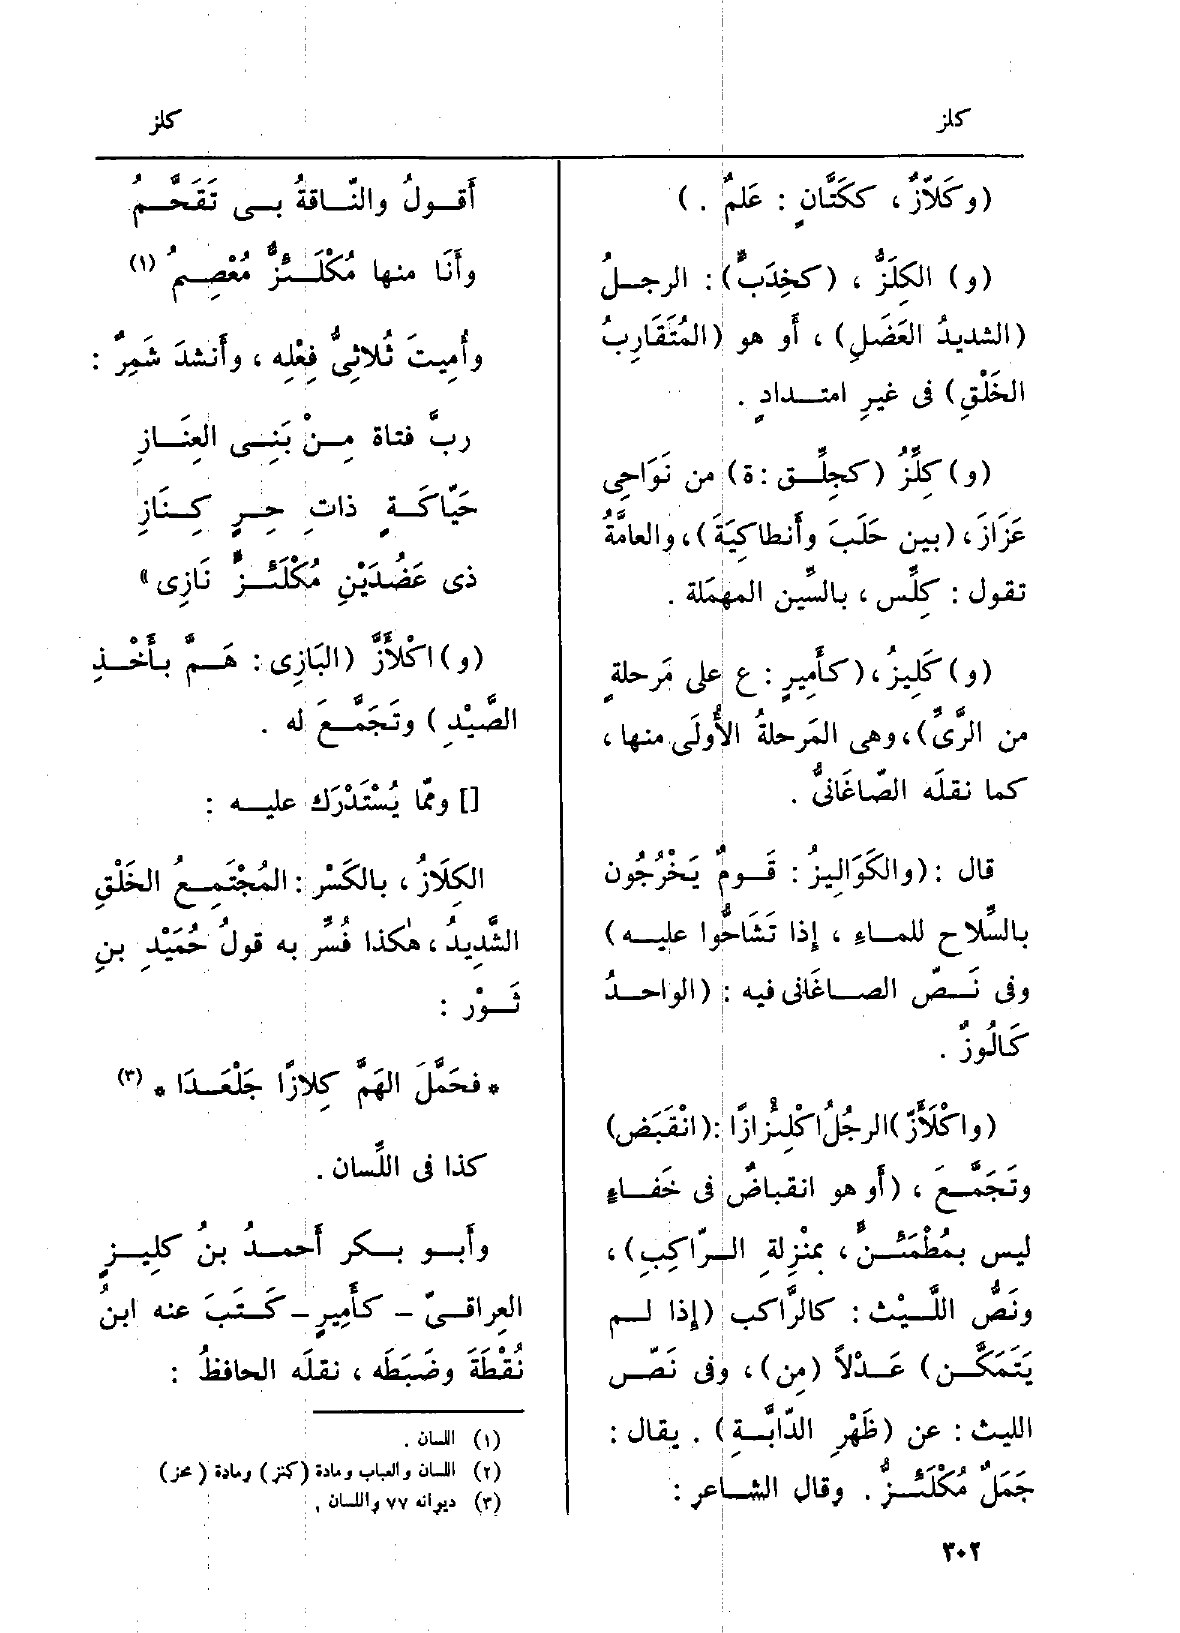 كلز
كلز
(وكَلاَّزٌ ، ككَتَّانٍ : عَلمٌ . )
(و) الكِلَزُّ ، (كخِدَبٌّ) : الرجــلُ
(الشديدُ العَضَلِ) ، أَو هو (المُتَقَارِبُ
الخَلْقِ) فى غيرِ امتــدادٍ .
(و) كِلِّزُ (كجِلِّــق : ة) من نَوَاحِى
عَزَازَ ، (بين حَلَبَ وأَنطاكِيَةَ) ، والعامَّةُ
تقول : كِلِّس ، بالسِّين المهمَلة .
(و) كَلِيزُ ، (كأَمِيرٍ : ع على مَرحلةٍ
من الرَّىِّ) ، وهى المَرحلةُ الأُولَى منها ،
كما نقلَه الصّاغَانىُّ .
قال : (والكَوَالِيزُ : قَــومٌ يَخْرُجُون
بالسِّلاح للمـاءِ ، إِذا تَشَاحُّوا عليــه)
وفى نَــصّ الصــاغَانى فيه : (الواحــدُ
كَالُوزٌ .
(واكْلَأَزَّ) الرجُلُ اكْلِئْزازًا : (انْقَبَض)
وتَجَمَّــعَ ، (أَو هو انقباضٌ فى خَفــاءٍ
ليس بمُطْمَئــنٍّ ، بمنْزِلةِ الــرّاكِبِ) ،
ونَصُّ اللَّــيْث : كالرَّاكب (إِذا لــم
يَتَمَكَّــن) عَــدْلاً (مِن) ، وفى نَصّ
الليث : عن (ظَهْرِ الدّابَّــةِ) . يقال :
جَمَلٌ مُكْلَئِــزٌّ . وقال الشــاعر :
أَقــولُ والنّــاقةُ بــى تَقَحَّــمُ
وأَنَا منها مُكْلَــئِزٌّ مُعْصِــمُ (١)
وأُمِيتَ ثُلاثِىُّ فِعْلِه ، وأَنشدَ شَمِرٌ :
ربَّ فتاة مِــنْ بَنِــى العِنَــازِ
حَيّاكَــةٍ ذاتِ حِــرٍ كِــنَازِ
ذى عَضُدَيْنِ مُكْلَئــزٍّ نَازِى »
(و) اكْلأَزَّ (البَازِى : هَــمَّ بأَخْــذِ
الصَّيْدِ) وتَجَمَّعَ له .
[] وممّا يُسْتَدْرَك عليــه :
الكِلَازُ ، بالكَسْر : المُجْتَمِــعُ الخَلْقِ
الشَّدِيدُ ، هٰكذا فُسِّر به قولُ حُمَيْدِ بنِ
ثَــوْر :
* فحَمَّلَ الهَمَّ كِلازًا جَلْعَــدَا * (٣)
كذا فى اللِّسان .
وأَبــو بــكر أَحمــدُ بنُ كلِيــزٍ
العِراقــىّ – كأَمِيرٍ – كَــتَبَ عنه ابنُ
نُقْطَةَ وضَبَطَه ، نقلَه الحافظُ :
(١) اللسان .
(٢) اللسان والعباب ومادة (كنز) ومادة (محز)
(٣) ديوانه ٧٧ واللسان .
٣٠٢